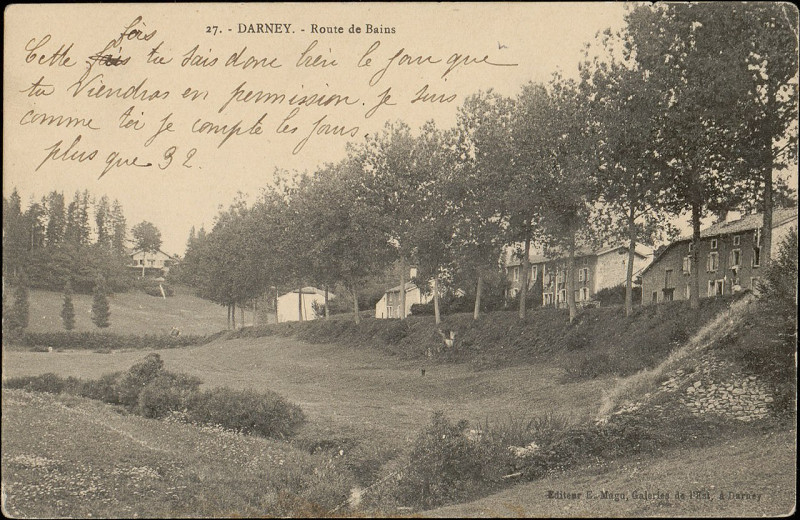 27. - DARNEY. - Route de Bains
fois
Cette fais tu sais donc bien le jour que
tu viendras en permission. je suis
comme toi je compte les jours
plus que 92.
Editeur E. Magu, Galeries de l'Est, à Darney